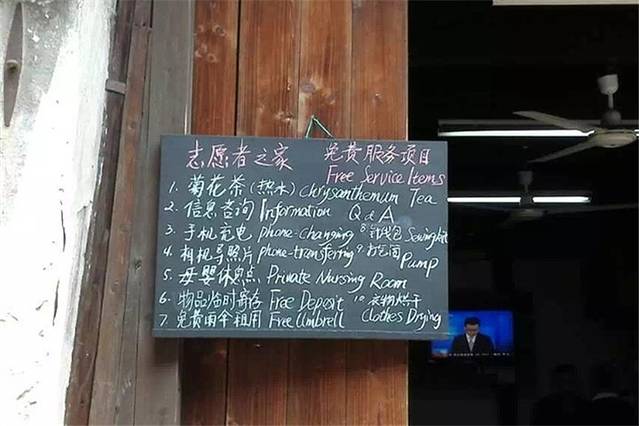 志愿者之家 免费服务项目
Free Service Items
1. 菊花茶(热水) Chrysanthemum Tea
2. 信息咨询 Information Q&A
3. 手机充电 phone-changing 8. 针线包 Sewing kit
4. 相机导照片 phone-transferring 9. 打气筒 Pump
5. 母婴休息点 Private Nursing Room
6. 物品临时寄存 Free Deposit 10. 衣物烘干
7. 免费雨伞租用 Free Umbrell Clothes Drying